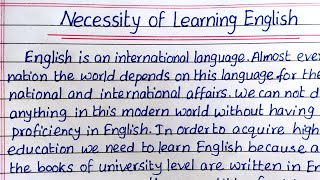 Necessity of Learning English
English is an international language. Almost
nation the world depends on this language for the
national and international affairs. We can not
anything in this modern world without having
proficiency in English. In order to acquire
education we need to learn English because
the books of university level are written in